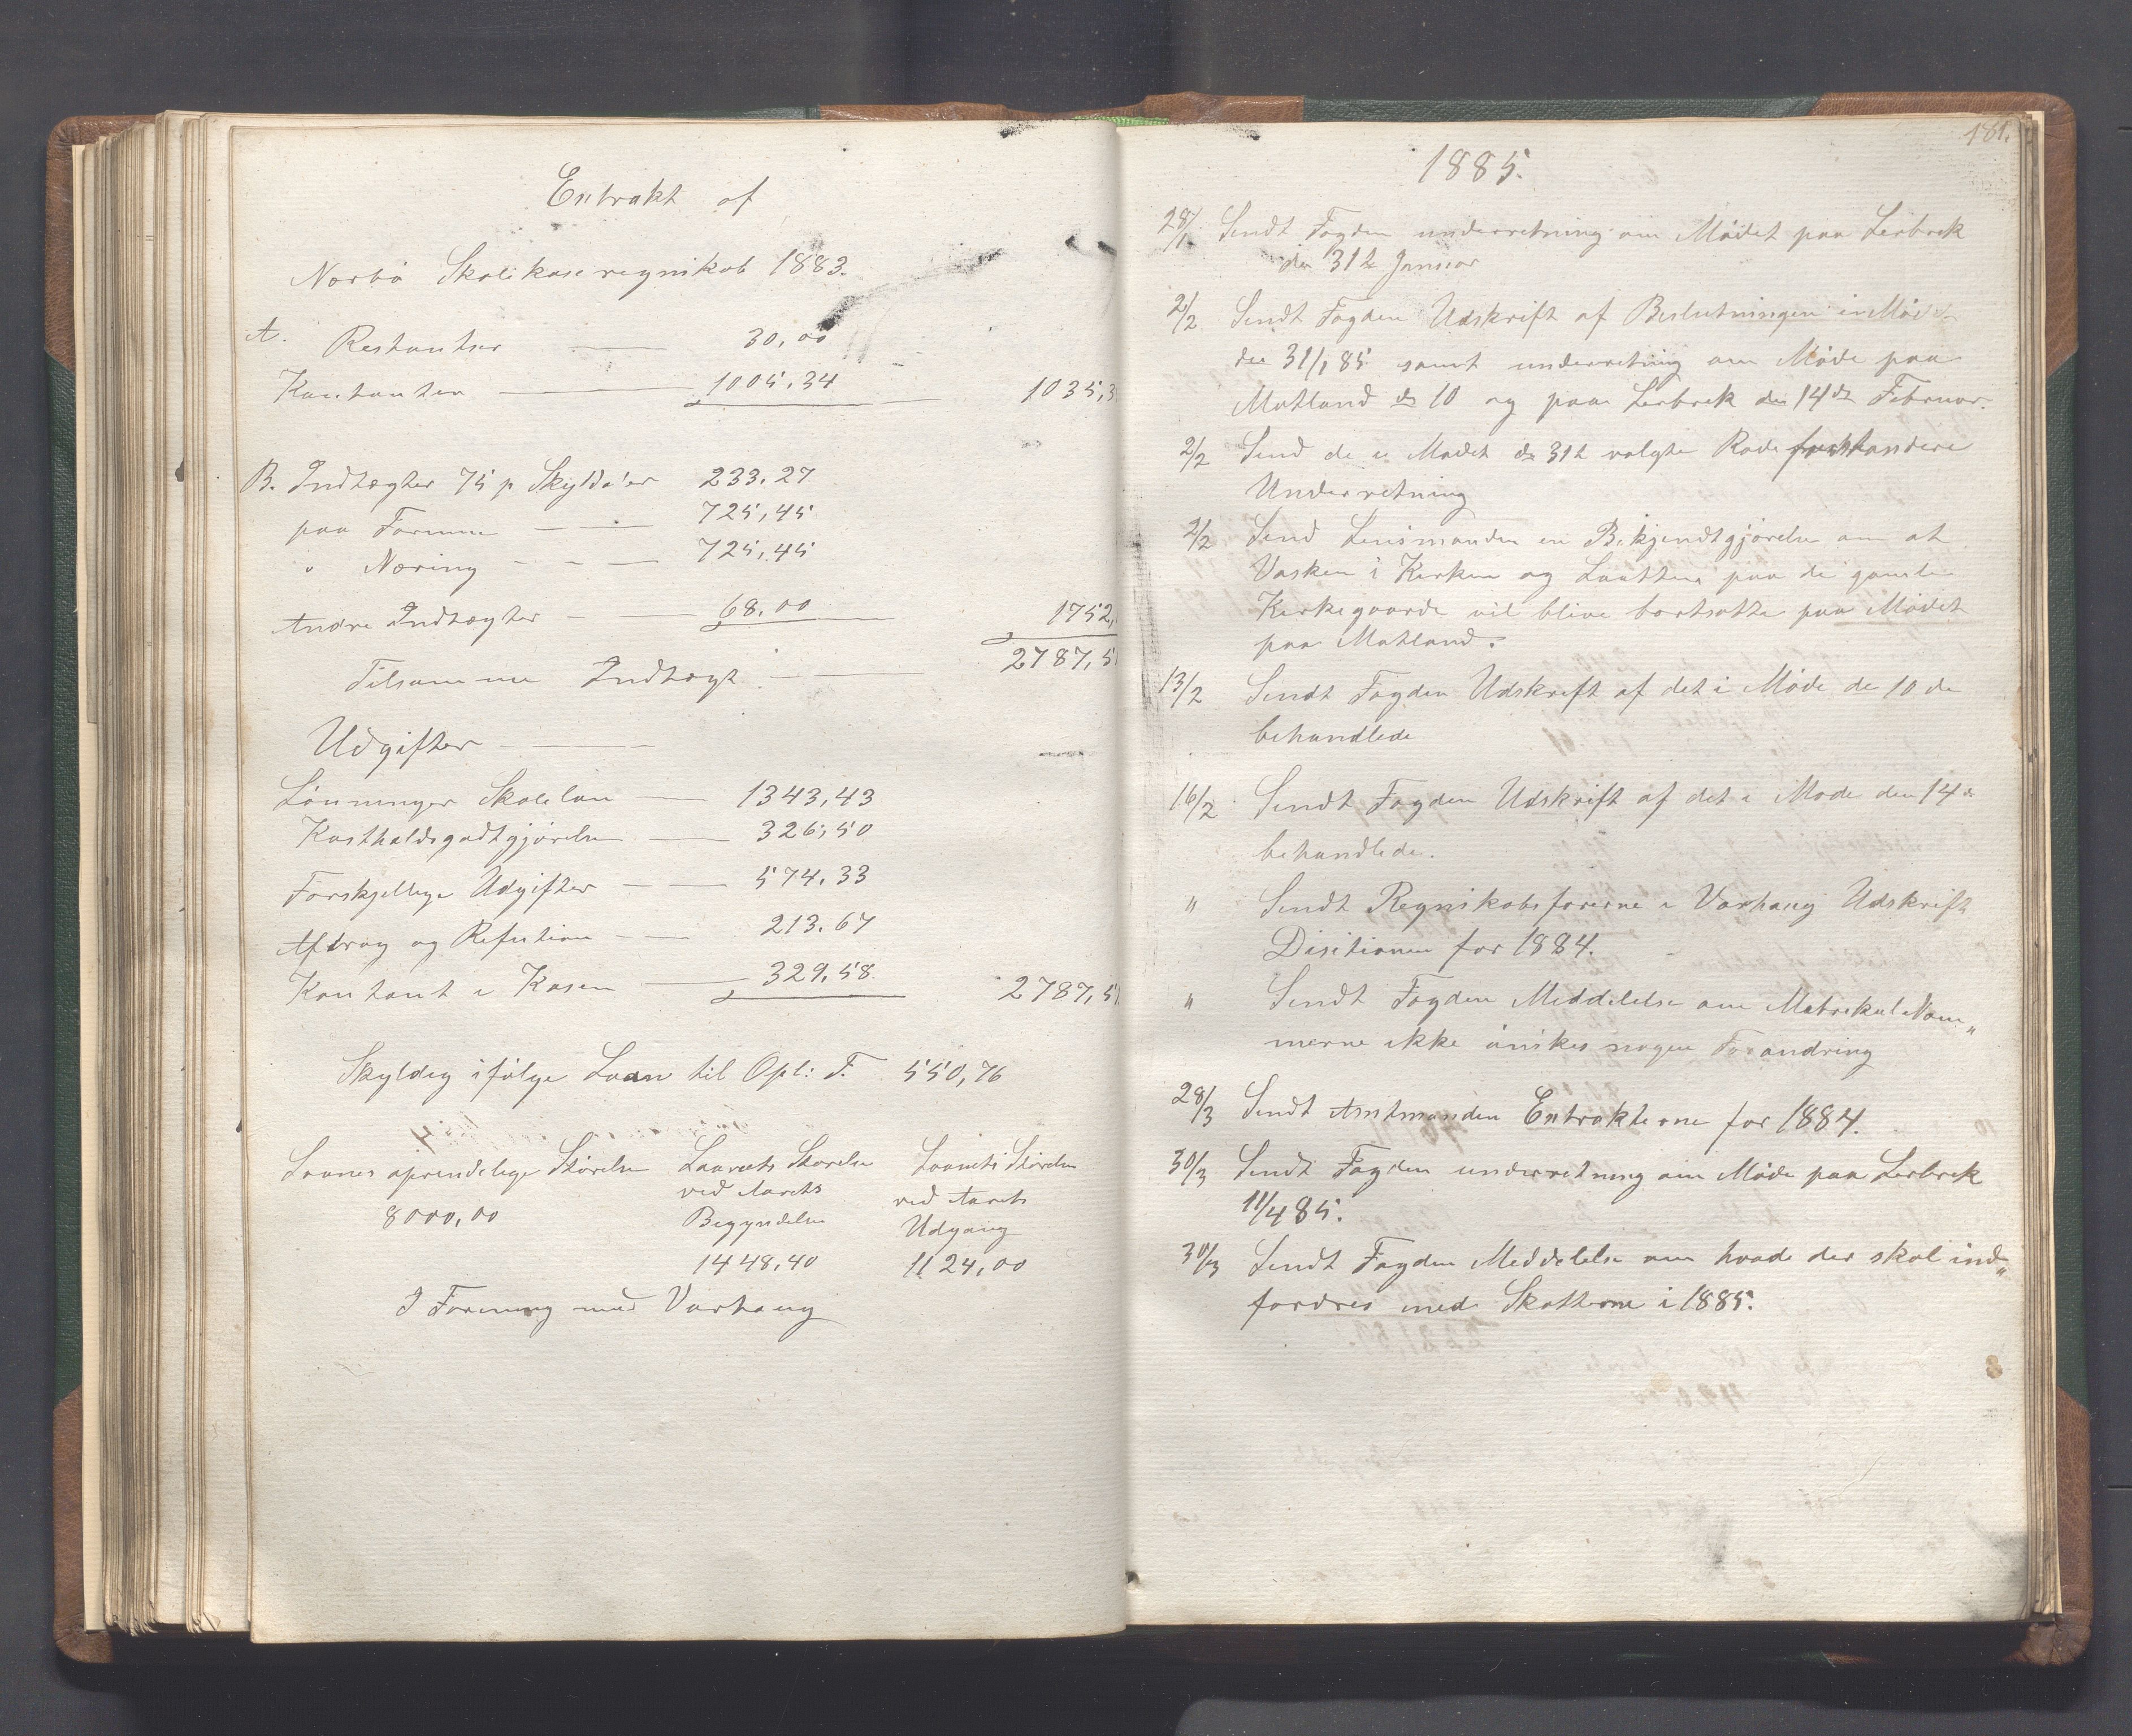 Extrakt af
Norbø Skolekaseregnskab 1883.
A. Restantser 30,00
Kontanter 1005,34 1035,3
B. Indtægter 75 p Skyldd'er 233.27
paa Formue 725,45
" Næring 725,45
Andre Indtægter 68,00 1752,
Tilsamme Indtægt 2787,5
Udgifter
Lønninger Skolelæn 1343,43
Kostholdsgodtgjørelse 326,50
Forskjellige Udgifter 574,33
Afdrag og Refution 213.67
Kontant i Kasen 329,58 2787,5
Skyldig ifølge Laan til Opl: F. 550,76
Laanes oprendelige Størelse Laanets Størelse Laanets Størelse
ved Aarets ved Aarets
8000,00 Begyndelse Udgang
1448,40 1124,00
I Forening med Varhaug
181.
1885.
28/1 Sendt Fogden underretning om Mødet paa Lerbrek
den 31te Januar
2/2 Sendt Fogden Udskrift af Beslutningen in Møde
den 31/1 85 samt underretning om Møde paa
Motland d 10 og paa Lerbrek den 14de Februar.
2/2 Send de i Mødet d 31t valgte Rodeforstandere
Underretning
2/2 Send Lensmanden en Bekjendtgjørelse om at
Vasken i Kirken og Laatten paa de gamle
Kirkegaarde vil blive bortsatte paa Mødet
paa Motland.
13/2 Sendt Fogden Udskrift af det i Møde de 10 de
behandlede
16/2 Sendt Fogden Udskrift af det i Møde den 14 d
behandlede.
" Sendt Regnskabsførerne i Varhaug Udskrift
Disitionen for 1884.
" Sendt Fogden Meddelelse om Matrikul Nom„
merne ikke ønskes nogen Forandring
28/3 Sendt Amtmanden Extrakterne for 1884.
30/3 Sendt Fogden underretning om Møde paa Lerbrek
11/4 85.
30/3 Sendt Fogden Meddelelse om hvade der skal ind„
fordres med Skatterne i 1885.